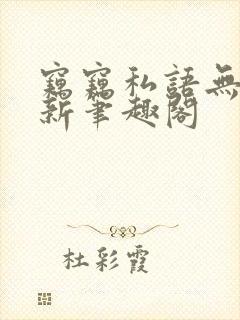 竊竊私語無
新筆趣閣
杜彩霞